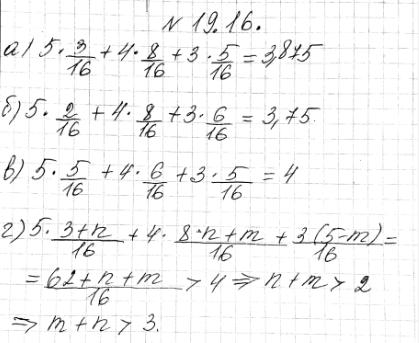 № 19.16.
а) 5·3/16 + 4·8/16 + 3·5/16 = 3,875
б) 5·2/16 + 4·8/16 + 3·6/16 = 3,75.
в) 5·5/16 + 4·6/16 + 3·5/16 = 4
г) 5·3+n/16 + 4·8-n+m/16 + 3(5-m)/16 =
= 62+n+m/16 > 4 ⇒ n+m > 2
⇒ m+n > 3.